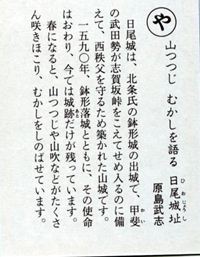 や
山つつじ むかしを語る 日尾城址
ひおじょうし
原島武志
日尾城は、北条氏の鉢形城の出城で、甲斐
かい
の武田勢が志賀坂峠をこえてせめ入るのに備
えて、西秩父を守るため築かれた山城です。
一五九〇年、鉢形落城とともに、その使命
はおわり、今では城跡だけが残っています。
あと
春になると、山つつじや山吹などがたくさ
ん咲きほこり、むかしをしのばせています。